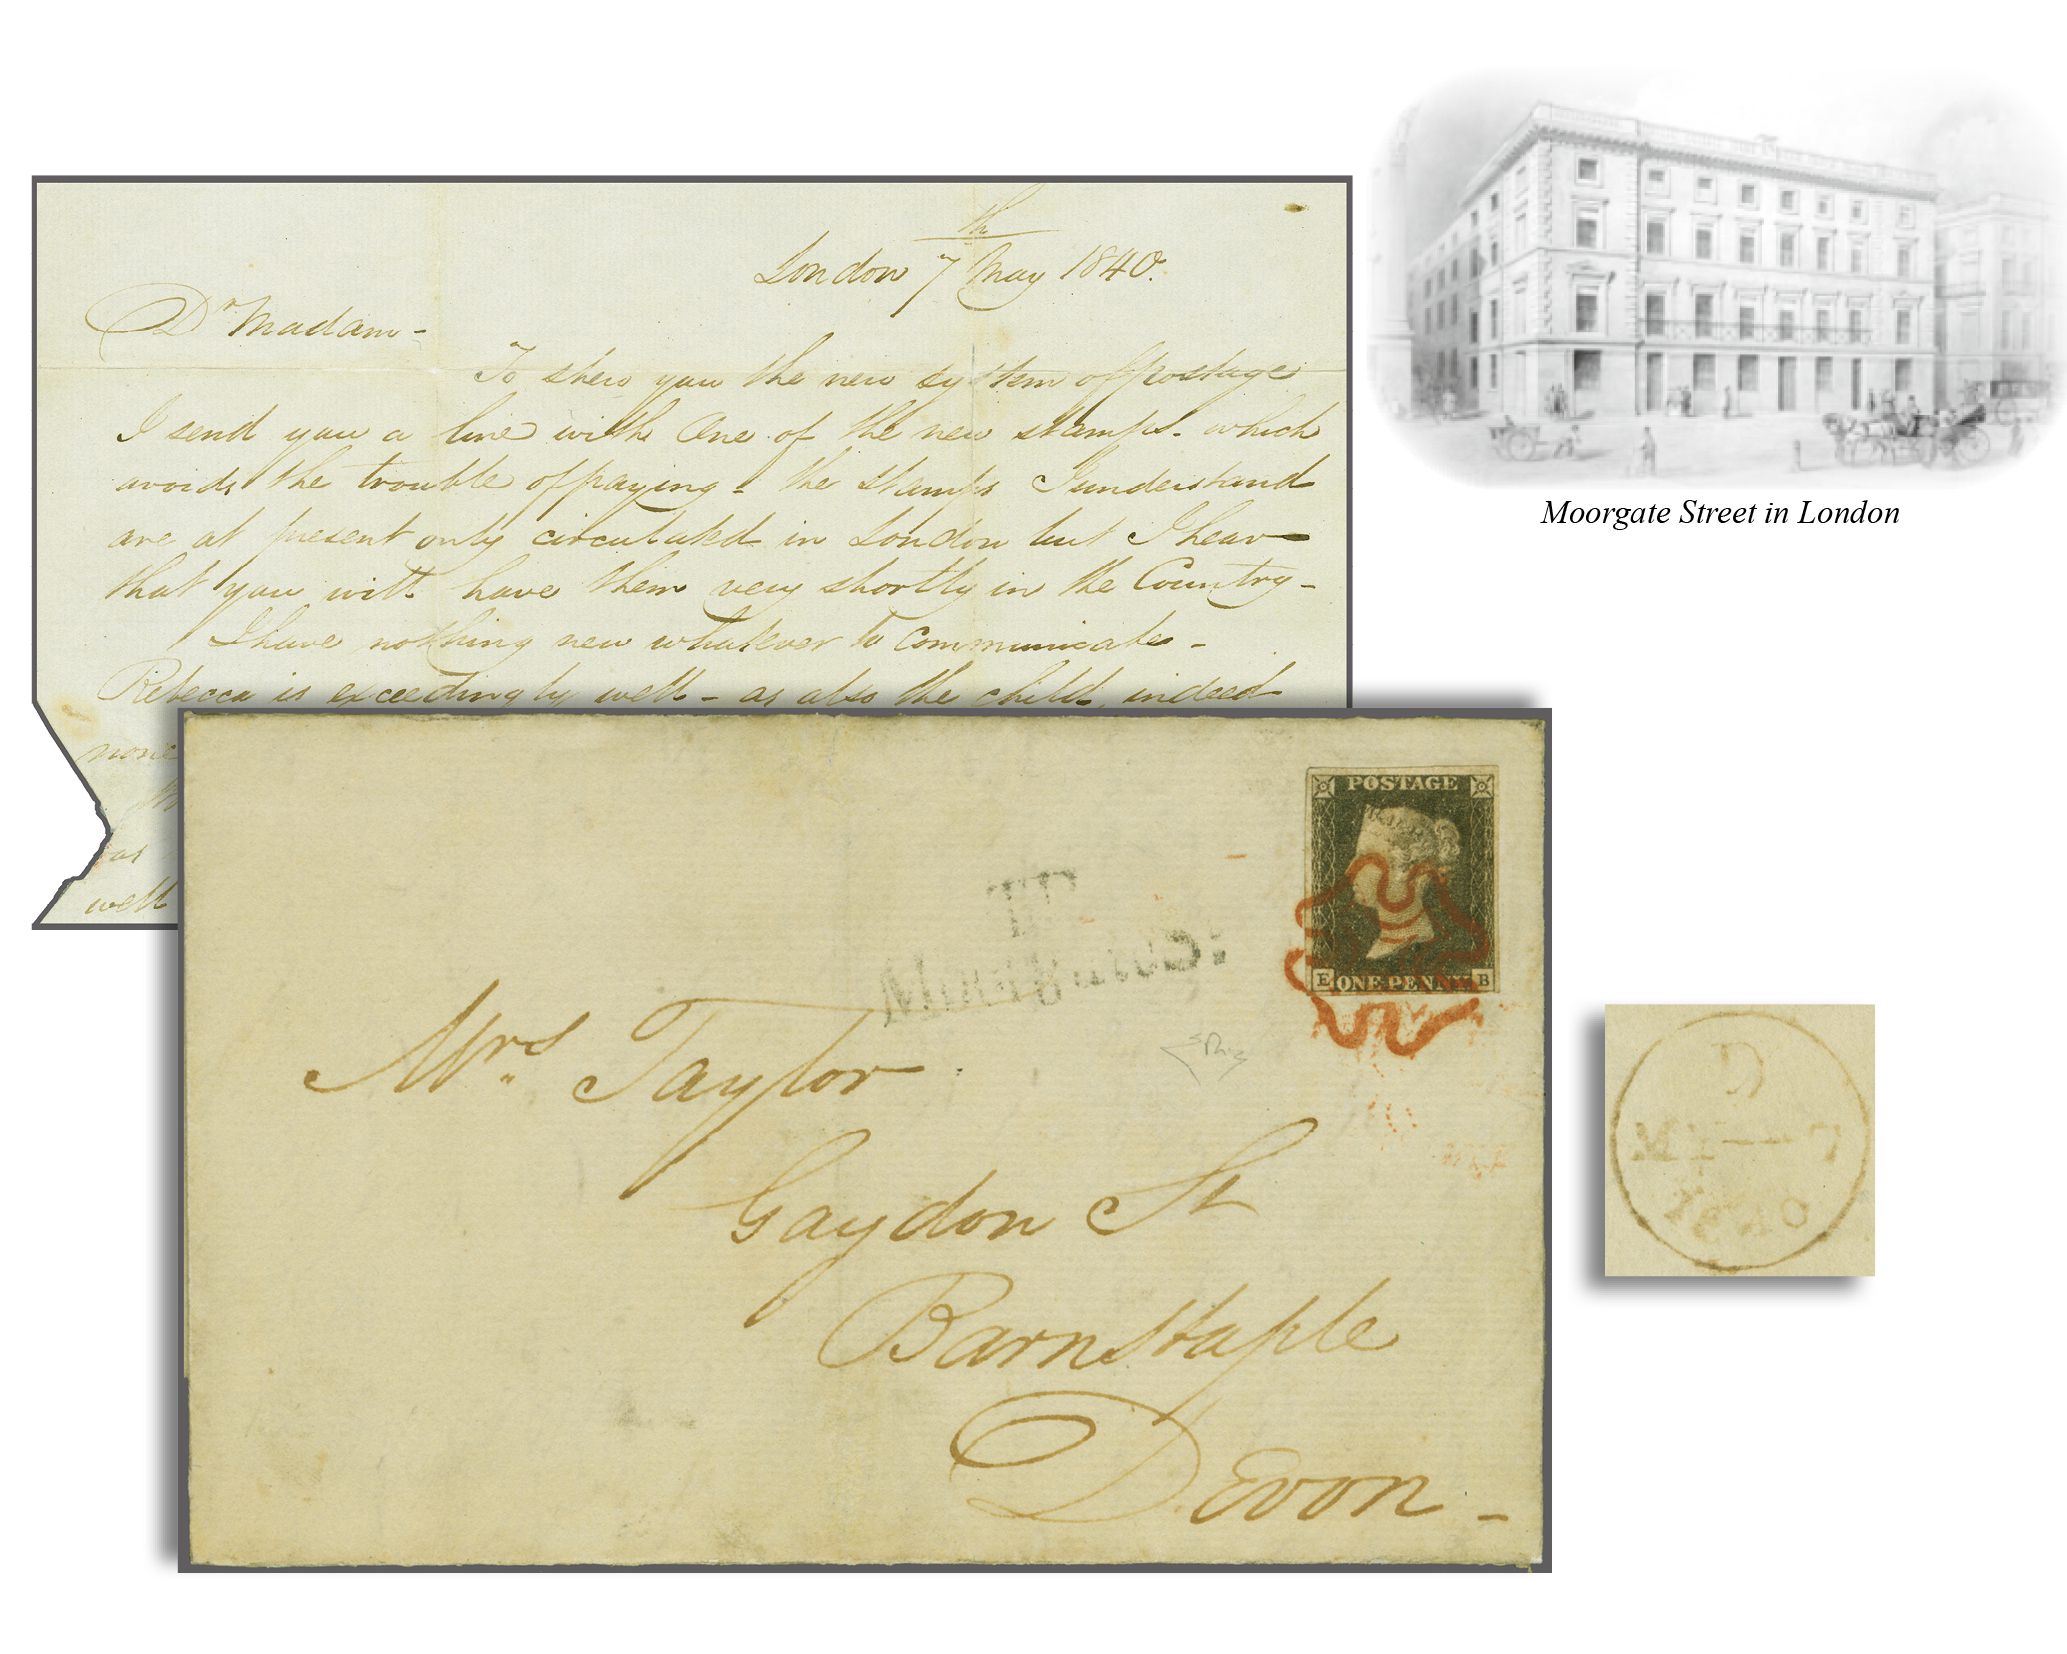 London 7th May 1840.
Dr Madam -
To shew you the new system of postage
I send you a line with One of the new stamps - which
avoids the trouble of paying - the stamps I understand
are at present only circulated in London but I hear
that you will have them very shortly in the Country -
I have nothing new whatever to communicate -
Rebecca is exceedingly well - as also the child, indeed
none
as
well
Moorgate Street in London
POSTAGE
E ONE PENNY B
T.P
Moorgate St:
Mrs. Taylor
Gaydon St
Barnstaple
Devon -
D
MY - 7
1840